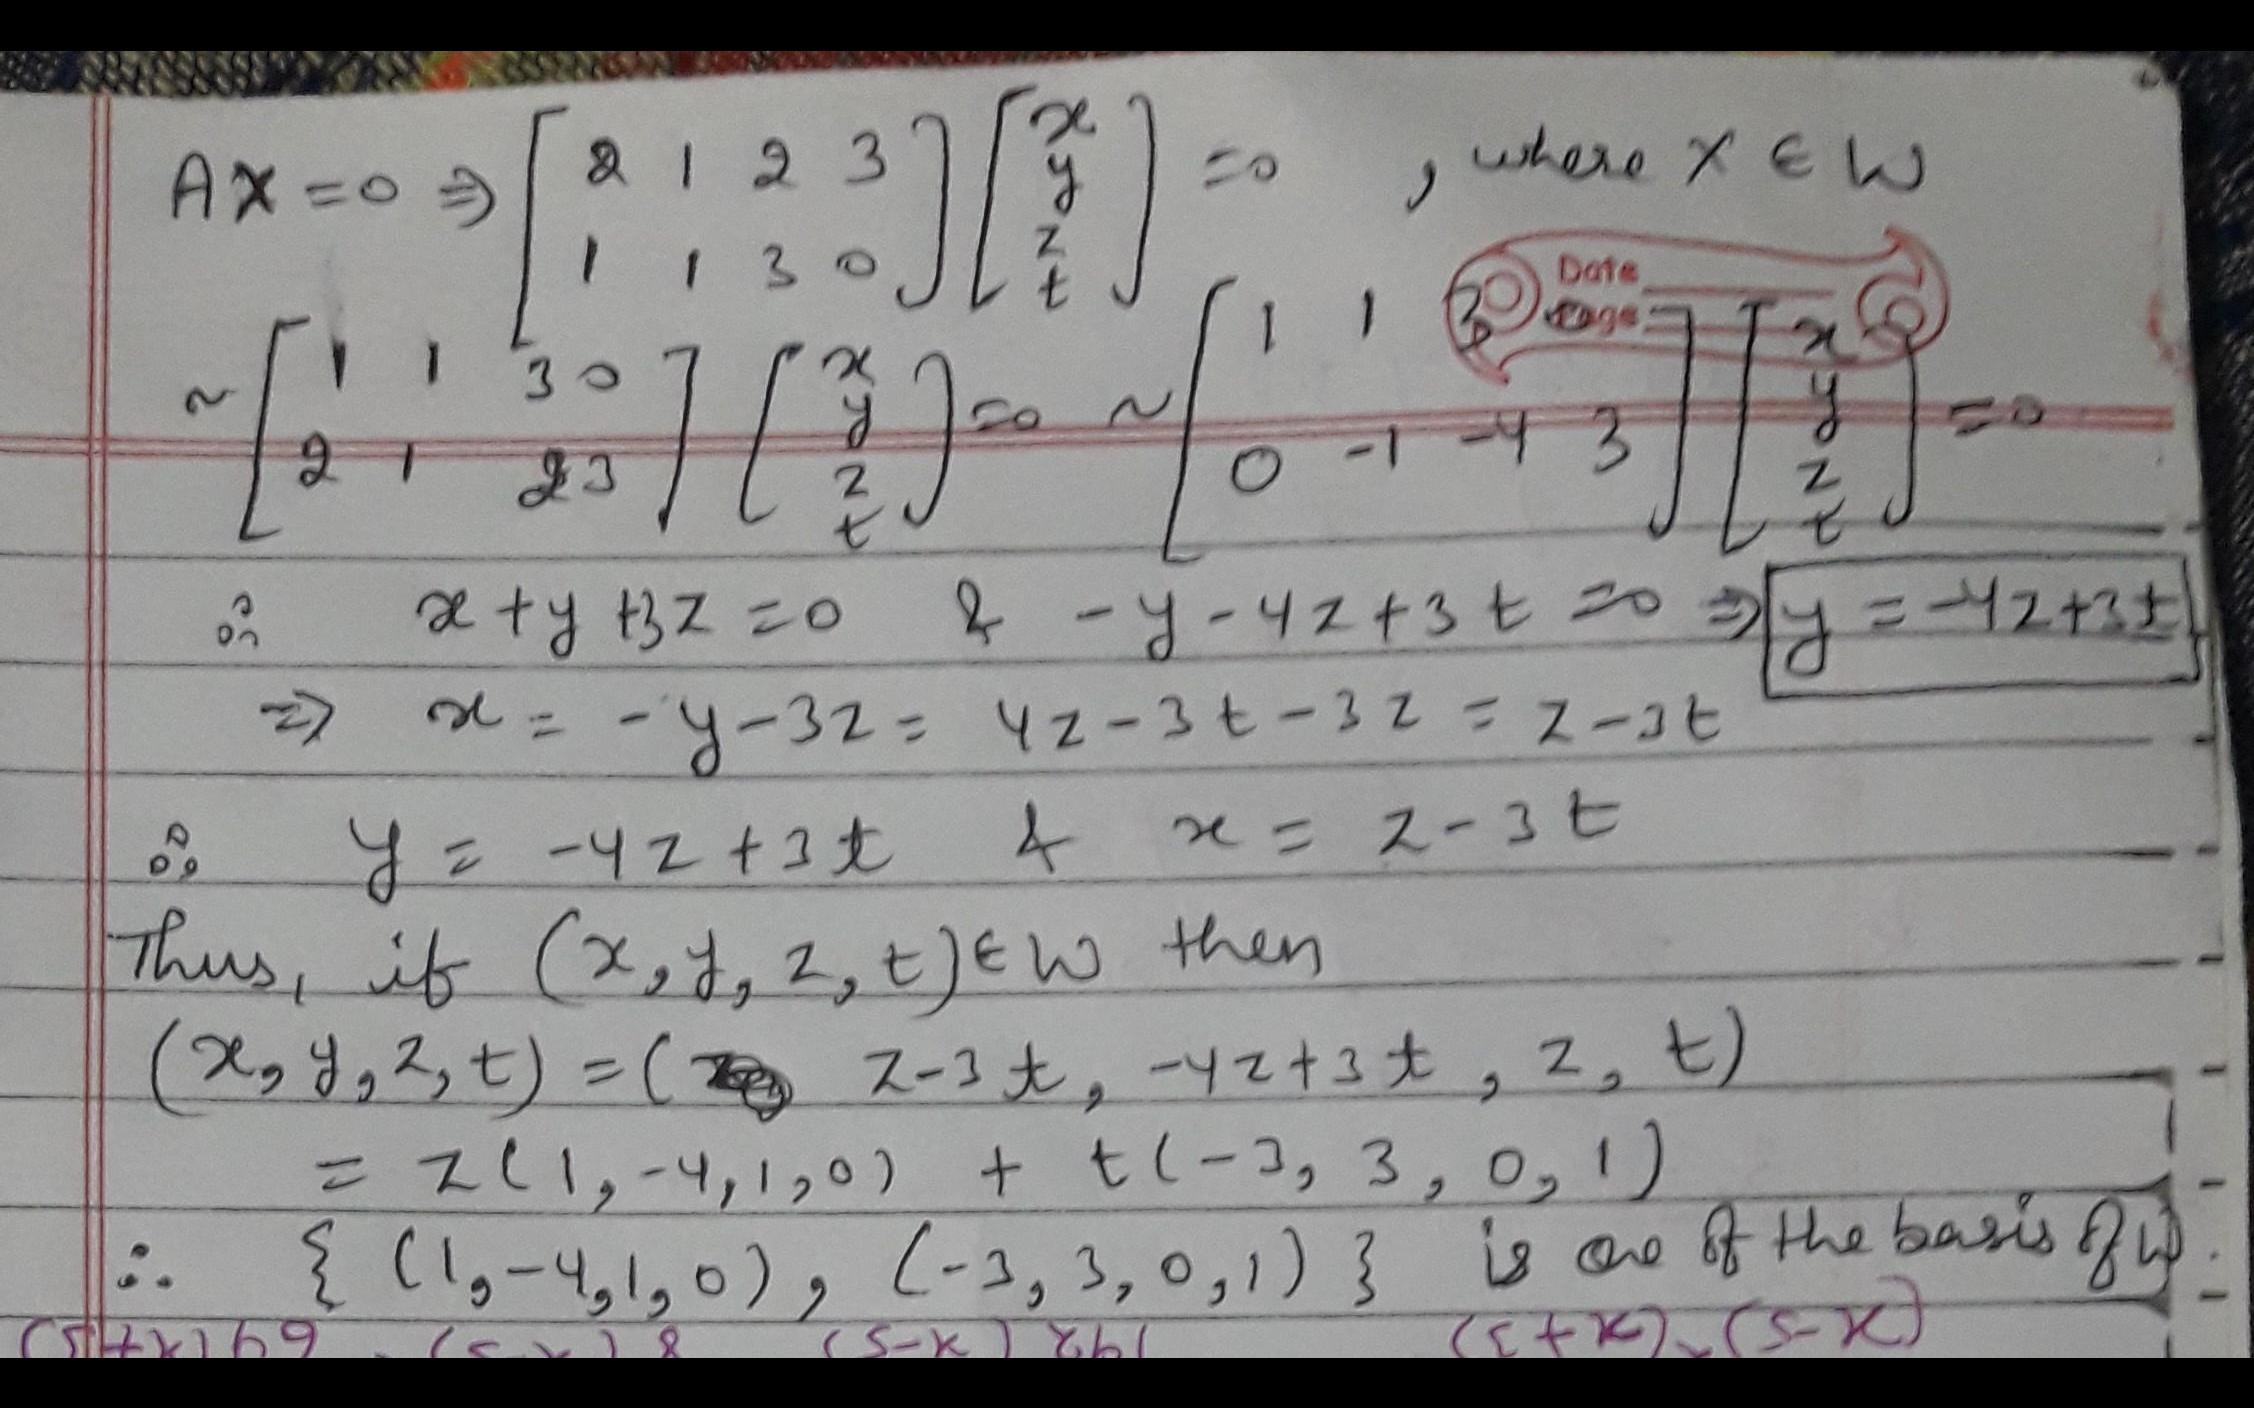 AX = 0 ⇒ [ 2 1 2 3 ; 1 1 3 0 ] [ x ; y ; z ; t ] = 0 , where X ∈ W
Date
Page
~ [ 1 1 3 0 ; 2 1 2 3 ] [ x ; y ; z ; t ] = 0 ~ [ 1 1 3 0 ; 0 -1 -4 3 ] [ x ; y ; z ; t ] = 0
∴ x + y + 3z = 0 & -y - 4z + 3t = 0 ⇒ y = -4z + 3t
⇒ x = -y - 3z = 4z - 3t - 3z = z - 3t
∴ y = -4z + 3t & x = z - 3t
Thus, if (x, y, z, t) ∈ W then
(x, y, z, t) = ( z - 3t, -4z + 3t, z, t)
= z(1, -4, 1, 0) + t(-3, 3, 0, 1)
∴ { (1, -4, 1, 0), (-3, 3, 0, 1) } is one of the basis of W.